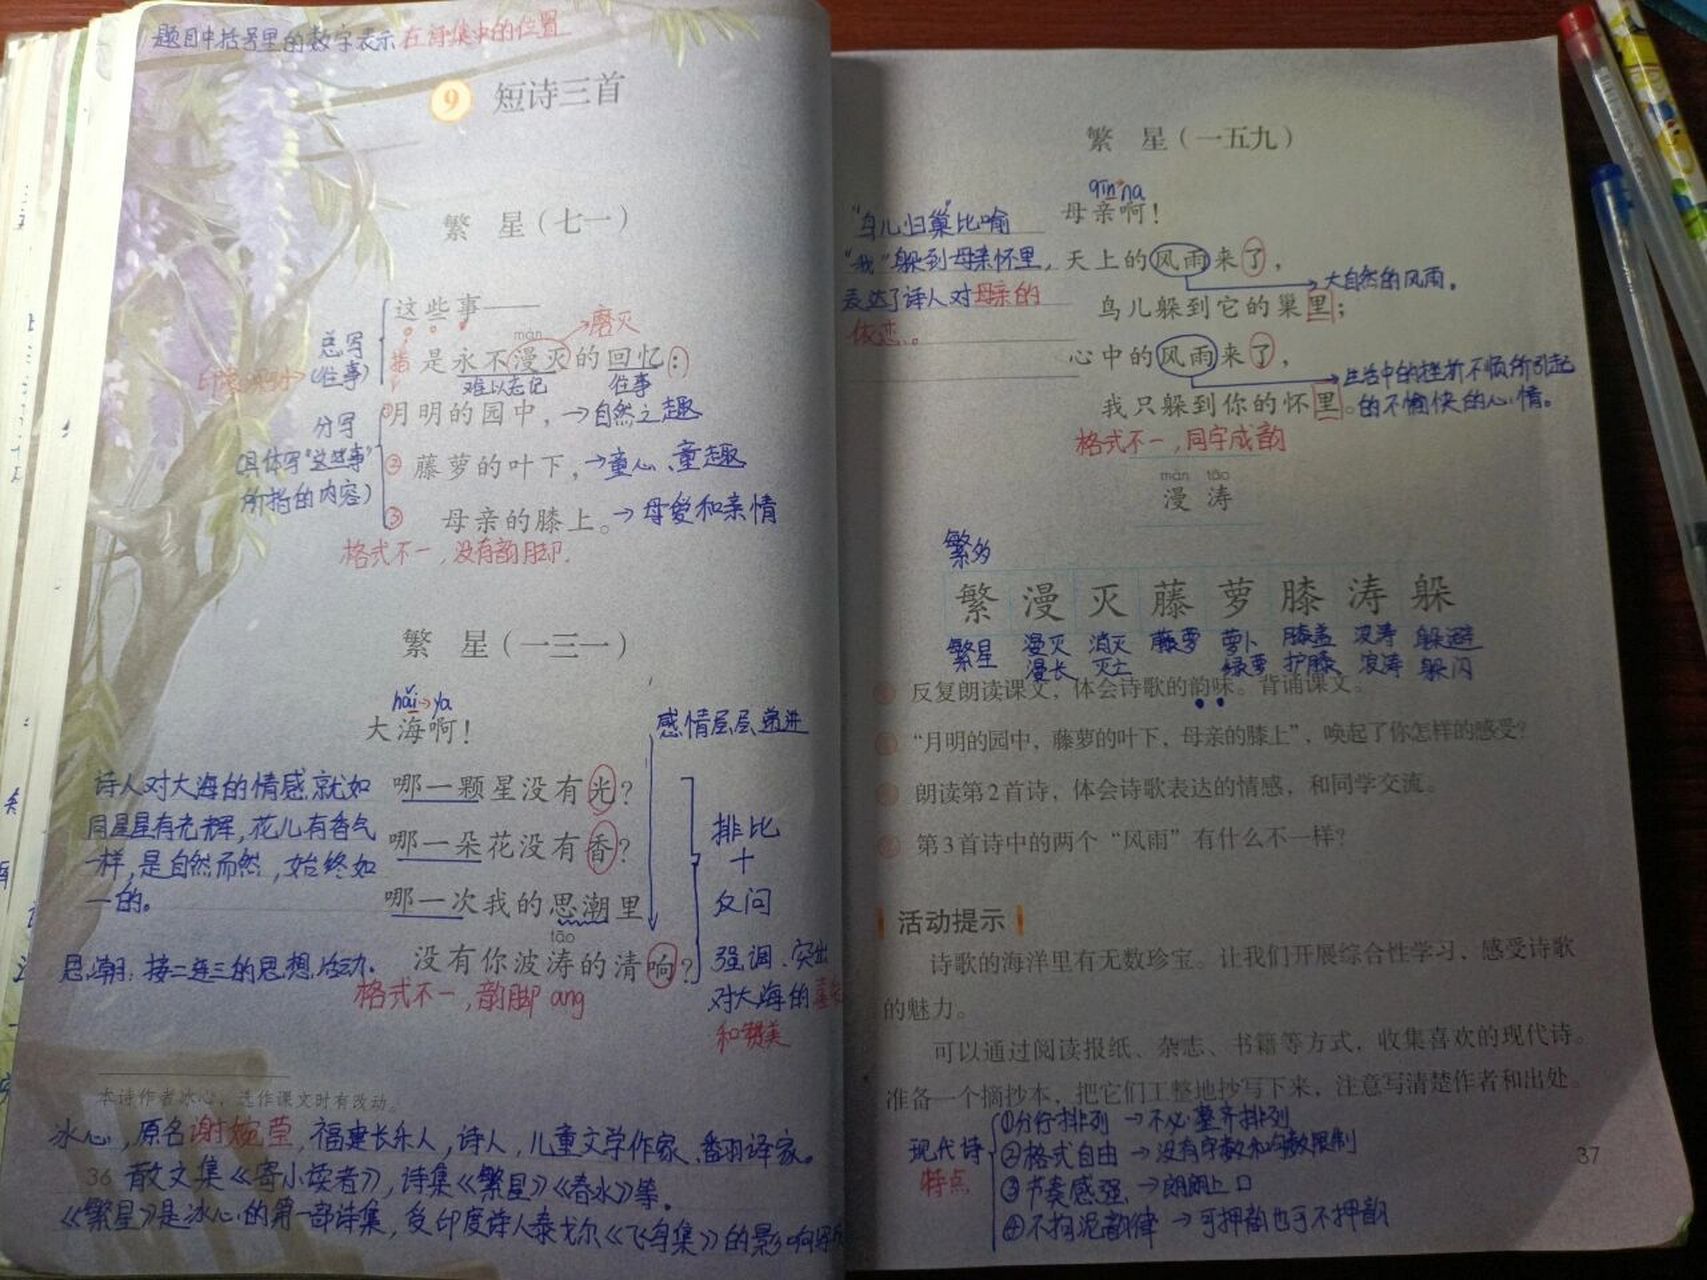 题目中括号里的数字表示在诗集中的位置
9 短诗三首
繁 星（七一）
这些事——
màn
→磨灭
是永不漫灭的回忆：
难以忘记 往事
总写
（往事）
月明的园中，→自然之趣
②藤萝的叶下，→童心、童趣
③母亲的膝上。→母爱和亲情
分写
（具体写“这些事”
所指的内容）
格式不一，没有韵脚.
繁 星（一三一）
hǎi→ya
大海啊！
感情层层递进
哪一颗星没有光？
哪一朵花没有香？
哪一次我的思潮里
tāo
没有你波涛的清响？
诗人对大海的情感就如
同星星有光辉，花儿有香气
一样，是自然而然，始终如
一的。
思潮：接二连三的思想活动.
格式不一，韵脚 ang
排比
+
反问
强调、突出
对大海的
和赞美
本诗作者冰心，选作课文时有改动。
冰心，原名谢婉莹，福建长乐人，诗人，儿童文学作家、翻译家。
36 散文集《寄小读者》，诗集《繁星》《春水》等.
《繁星》是冰心的第一部诗集，受印度诗人泰戈尔《飞鸟集》的影响
繁 星（一五九）
qīn→na
母亲啊！
“鸟儿归巢”比喻
“我”躲到母亲怀里，
表达了诗人对母亲的
依恋。
天上的风雨来了，
→大自然的风雨.
鸟儿躲到它的巢里；
心中的风雨来了，
→生活中的挫折不顺所引起
的不愉快的心情。
我只躲到你的怀里。
格式不一，同字成韵
màn tāo
漫 涛
繁多
繁 漫 灭 藤 萝 膝 涛 躲
繁星 漫灭 消灭 藤萝 萝卜 膝盖 波涛 躲避
漫长 灭土 绿萝 护膝 浪涛 躲闪
反复朗读课文，体会诗歌的韵味。背诵课文。
“月明的园中，藤萝的叶下，母亲的膝上”，唤起了你怎样的感受？
朗读第2首诗，体会诗歌表达的情感，和同学交流。
第3首诗中的两个“风雨”有什么不一样？
活动提示
诗歌的海洋里有无数珍宝。让我们开展综合性学习，感受诗歌
的魅力。
可以通过阅读报纸、杂志、书籍等方式，收集喜欢的现代诗。
准备一个摘抄本，把它们工整地抄写下来，注意写清楚作者和出处。
现代诗
特点
①分行排列 →不必整齐排列
②格式自由 →没有字数和句数限制
③节奏感强 →朗朗上口
④不拘泥韵律 →可押韵也可不押韵
37